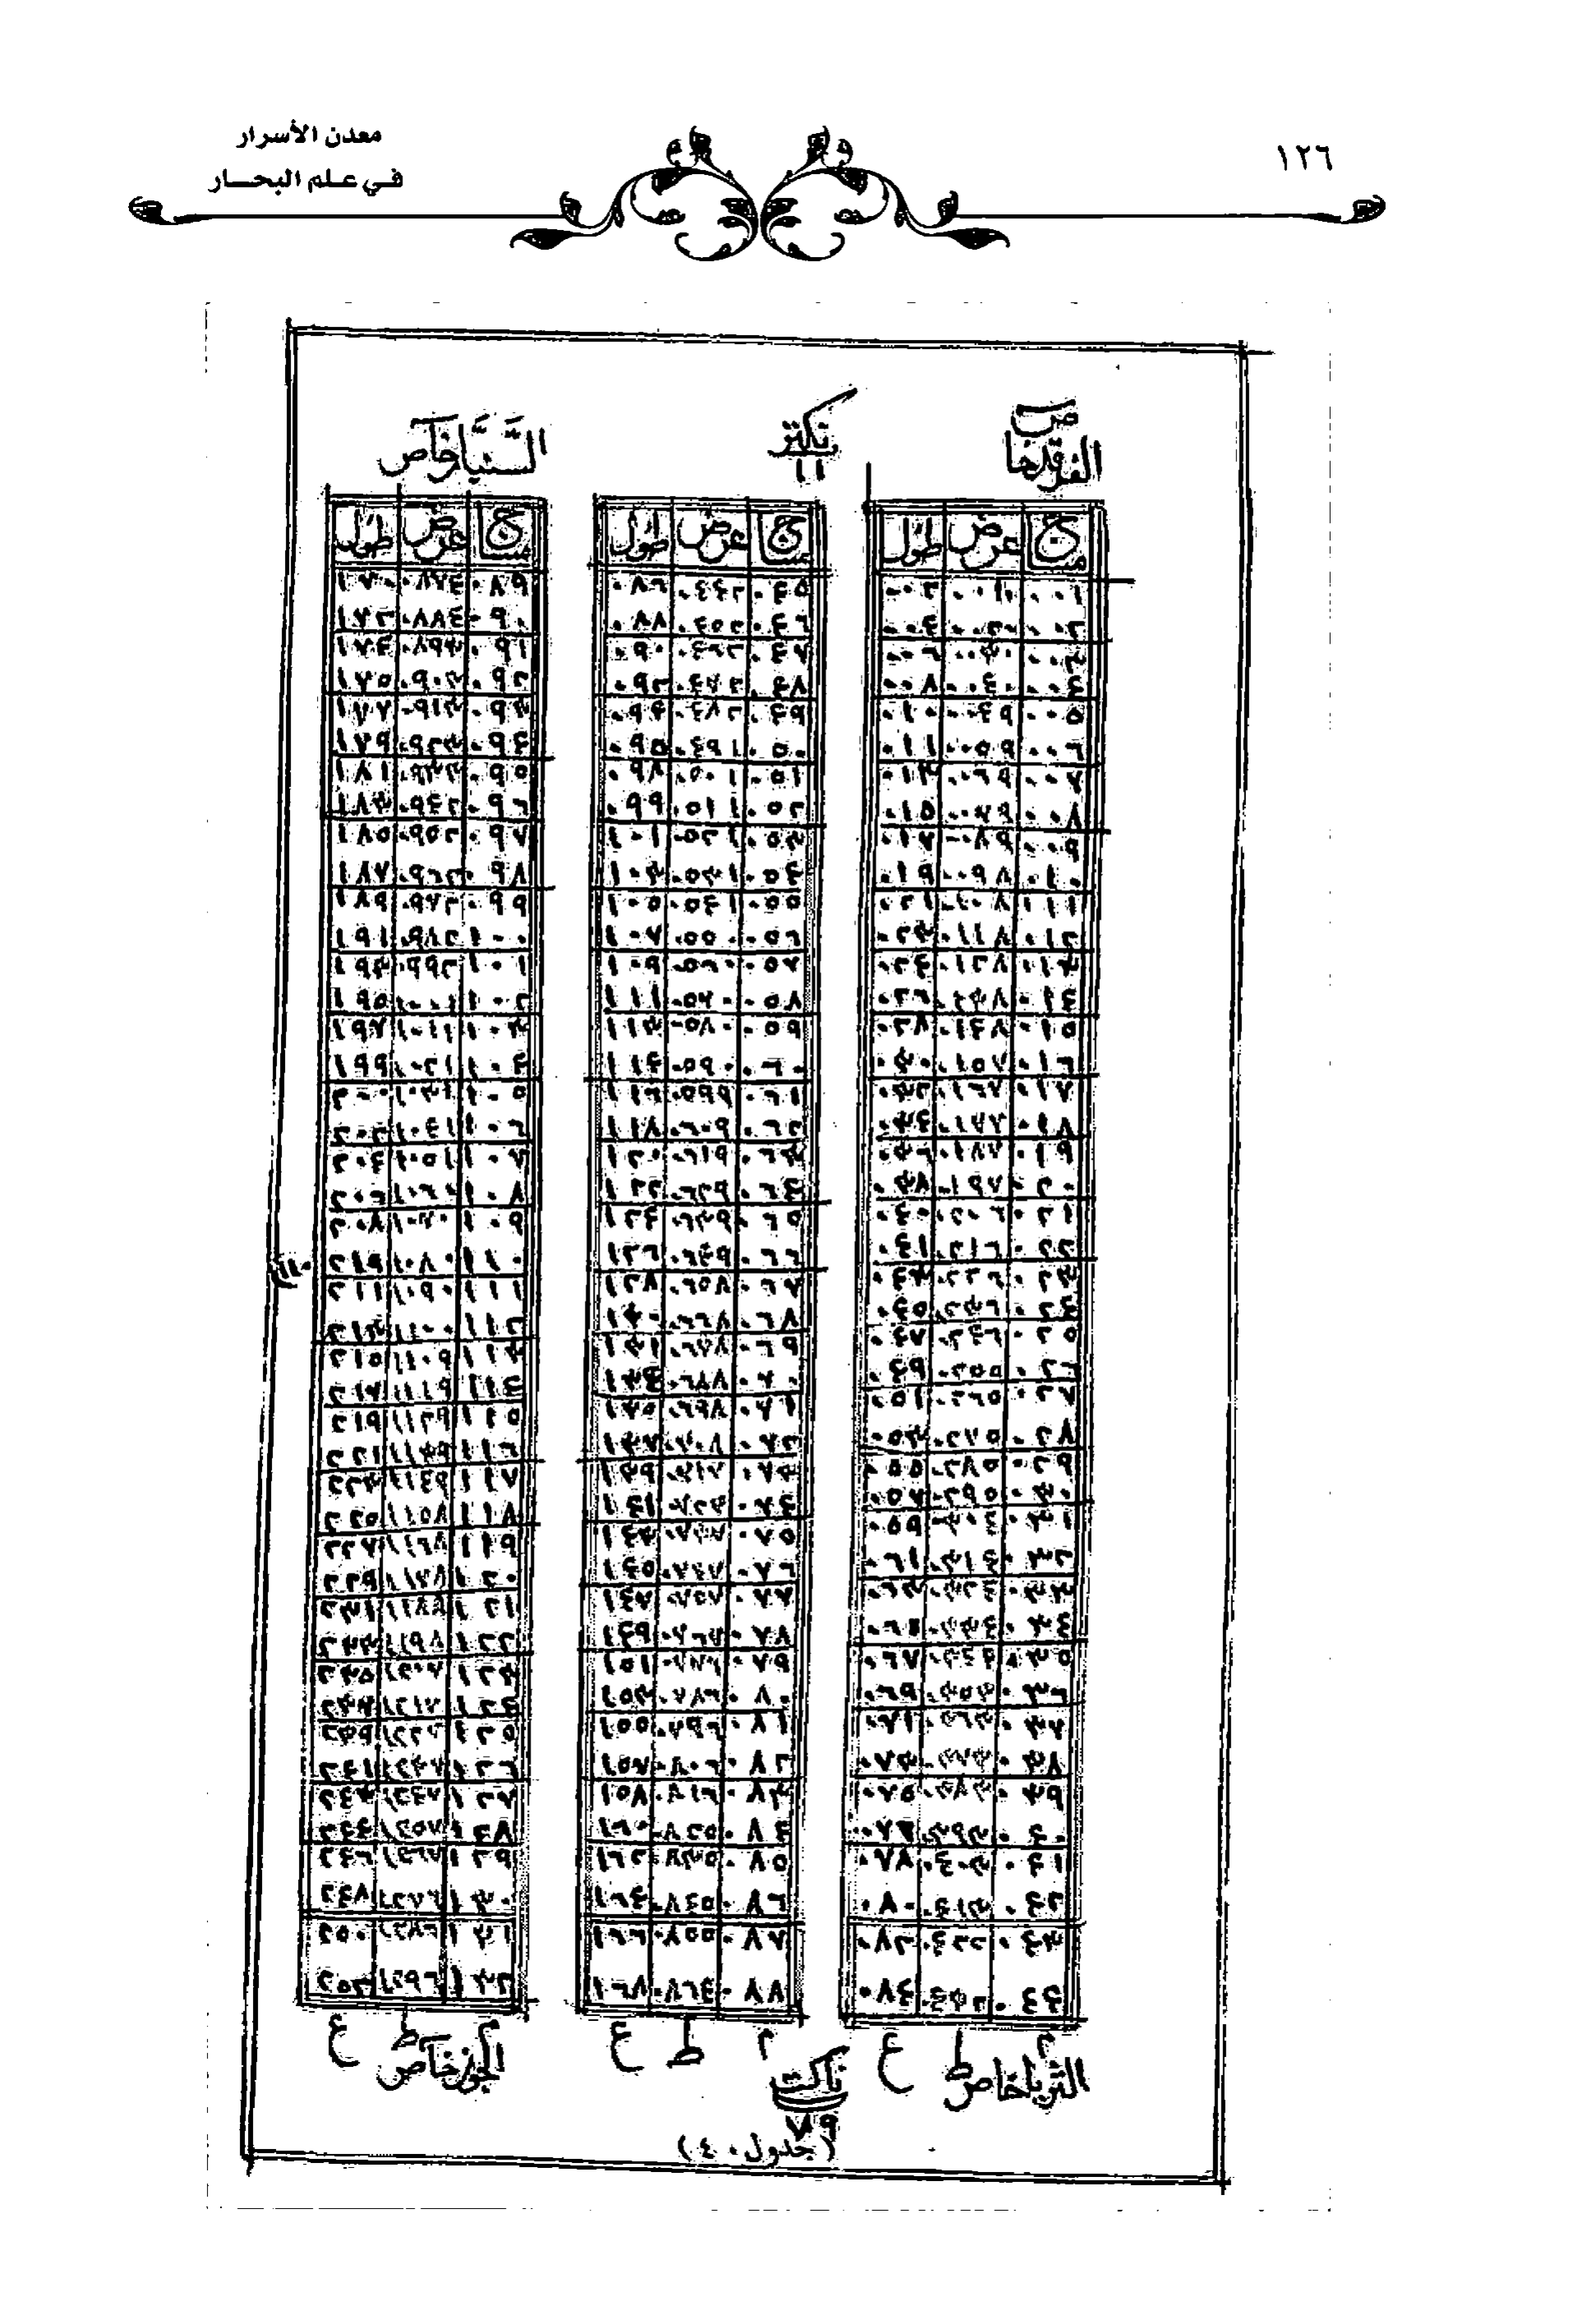 ١٢٦
معدن الأسرار
في علم البحار
الفرقد خاص
نكتز
١١
السنيا خاص
مساج عرض طول
٠٠١ ٠٠١٠ ٠٠٢
٠٠٢ ٠٠٢٠ ٠٠٤
٠٠٣ ٠٠٣٠ ٠٠٦
٠٠٤ ٠٠٤٠ ٠٠٨
٠٠٥ ٠٠٤٩ ٠١٠
٠٠٦ ٠٠٥٩ ٠١١
٠٠٧ ٠٠٦٩ ٠١٣
٠٠٨ ٠٠٧٩ ٠١٥
٠٠٩ ٠٠٨٩ ٠١٧
٠١٠ ٠٠٩٨ ٠١٩
٠١١ ٠١٠٨ ٠٢١
٠١٢ ٠١١٨ ٠٢٣
٠١٣ ٠١٢٨ ٠٢٤
٠١٤ ٠١٣٨ ٠٢٦
٠١٥ ٠١٤٨ ٠٢٨
٠١٦ ٠١٥٧ ٠٣٠
٠١٧ ٠١٦٧ ٠٣٢
٠١٨ ٠١٧٧ ٠٣٤
٠١٩ ٠١٨٧ ٠٣٦
٠٢٠ ٠١٩٧ ٠٣٨
٠٢١ ٠٢٠٦ ٠٤٠
٠٢٢ ٠٢١٦ ٠٤١
٠٢٣ ٠٢٢٦ ٠٤٣
٠٢٤ ٠٢٣٦ ٠٤٥
٠٢٥ ٠٢٤٦ ٠٤٧
٠٢٦ ٠٢٥٥ ٠٤٩
٠٢٧ ٠٢٦٥ ٠٥١
٠٢٨ ٠٢٧٥ ٠٥٣
٠٢٩ ٠٢٨٥ ٠٥٥
٠٣٠ ٠٢٩٥ ٠٥٧
٠٣١ ٠٣٠٤ ٠٥٩
٠٣٢ ٠٣١٤ ٠٦١
٠٣٣ ٠٣٢٤
٠٣٤ ٠٣٣٤
٠٣٥ ٠٣٤٤ ٠٦٧
٠٣٦ ٠٣٥٤ ٠٦٩
٠٣٧ ٠٧١
٠٣٨ ٠٣٧٣ ٠٧٣
٠٣٩ ٠٣٨٣ ٠٧٥
٠٤٠ ٠٣٩٣
٠٤١ ٠٤٠٣ ٠٧٨
٠٤٢ ٠٤١٣ ٠٨٠
٠٤٣ ٠٤٢٢ ٠٨٢
٠٤٤ ٠٤٣٢ ٠٨٤
م ط ع
الثريا خاص
مساج عرض طول
٠٤٥ ٠٤٤٢ ٠٨٦
٠٤٦ ٠٤٥٢ ٠٨٨
٠٤٧ ٠٤٦٢ ٠٩٠
٠٤٨ ٠٤٧٢ ٠٩٢
٠٤٩ ٠٤٨٢ ٠٩٤
٠٥٠ ٠٤٩١ ٠٩٥
٠٥١ ٠٥٠١ ٠٩٨
٠٥٢ ٠٥١١ ٠٩٩
٠٥٣ ٠٥٢١ ١٠١
٠٥٤ ٠٥٣١ ١٠٣
٠٥٥ ٠٥٤١ ١٠٥
٠٥٦ ٠٥٥٠ ١٠٧
٠٥٧ ٠٥٦٠ ١٠٩
٠٥٨ ٠٥٧٠ ١١١
٠٥٩ ٠٥٨٠ ١١٣
٠٦٠ ٠٥٩٠ ١١٤
٠٦١ ٠٥٩٩ ١١٦
٠٦٢ ٠٦٠٩ ١١٨
٠٦٣ ٠٦١٩ ١٢٠
٠٦٤ ٠٦٢٩ ١٢٢
٠٦٥ ٠٦٣٩ ١٢٤
٠٦٦ ٠٦٤٩ ١٢٦
٠٦٧ ٠٦٥٨ ١٢٨
٠٦٨ ٠٦٦٨ ١٣٠
٠٦٩ ٠٦٧٨ ١٣١
٠٧٠ ٠٦٨٨ ١٣٤
٠٧١ ٠٦٩٨ ١٣٥
٠٧٢ ٠٧٠٨ ١٣٧
٠٧٣ ٠٧١٧ ١٣٩
٠٧٤ ٠٧٢٧ ١٤١
٠٧٥ ٠٧٣٧ ١٤٣
٠٧٦ ٠٧٤٧ ١٤٥
٠٧٧ ٠٧٥٧ ١٤٧
٠٧٨ ٠٧٦٧ ١٤٩
٠٧٩ ٠٧٧٦ ١٥١
٠٨٠ ٠٧٨٦ ١٥٣
٠٨١ ٠٧٩٦ ١٥٥
٠٨٢ ٠٨٠٦ ١٥٧
٠٨٣ ٠٨١٦ ١٥٨
٠٨٤ ٠٨٢٥ ١٦٠
٠٨٥ ٠٨٣٥ ١٦٢
٠٨٦ ٠٨٤٥ ١٦٤
٠٨٧ ٠٨٥٥ ١٦٦
٠٨٨ ٠٨٦٤ ١٦٨
م ط ع
ناكت
٧٩
مساج عرض طول
٠٨٩ ٠٨٧٤ ١٧٠
٠٩٠ ٠٨٨٤ ١٧٢
٠٩١ ٠٨٩٣ ١٧٤
٠٩٢ ٠٩٠٣ ١٧٥
٠٩٣ ٠٩١٣ ١٧٧
٠٩٤ ٠٩٢٣ ١٧٩
٠٩٥ ٠٩٣٣ ١٨١
٠٩٦ ٠٩٤٢ ١٨٣
٠٩٧ ٠٩٥٢ ١٨٥
٠٩٨ ٠٩٦٢ ١٨٧
٠٩٩ ٠٩٧٢ ١٨٩
١٠٠ ٠٩٨٢ ١٩١
١٠١ ٠٩٩٢ ١٩٣
١٠٢ ١٠٠١ ١٩٥
١٠٣ ١٠١١ ١٩٧
١٠٤ ١٠٢١ ١٩٩
١٠٥ ١٠٣١ ٢٠٠
١٠٦ ١٠٤١ ٢٠٢
١٠٧ ١٠٥١ ٢٠٤
١٠٨ ١٠٦٠ ٢٠٦
١٠٩ ١٠٧٠ ٢٠٨
١١٠ ١٠٨٠ ٢١٩
١١١ ١٠٩٠ ٢١١
١١٢ ١١٠٠ ٢١٣
١١٣ ١١٠٩ ٢١٥
١١٤ ١١١٩ ٢١٧
١١٥ ١١٢٩ ٢١٩
١١٦ ١١٣٩ ٢٢١
١١٧ ١١٤٩ ٢٢٣
١١٨ ١١٥٨ ٢٢٥
١١٩ ١١٦٨ ٢٢٧
١٢٠ ١١٧٨ ٢٢٩
١٢١ ١١٨٨ ٢٣١
١٢٢ ١١٩٨ ٢٣٣
١٢٣ ١٢٠٧ ٢٣٥
١٢٤ ١٢١٧ ٢٣٧
١٢٥ ١٢٢٧ ٢٣٩
١٢٦ ١٢٣٧ ٢٤١
١٢٧ ١٢٤٧ ٢٤٣
١٢٨ ١٢٥٧ ٢٤٤
١٢٩ ١٢٦٧ ٢٤٦
١٣٠ ١٢٧٦ ٢٤٨
١٣١ ١٢٨٦ ٢٥٠
١٣٢ ١٢٩٦ ٢٥٢
م ط ع
الجوز خاص
(جدول ٤٠)